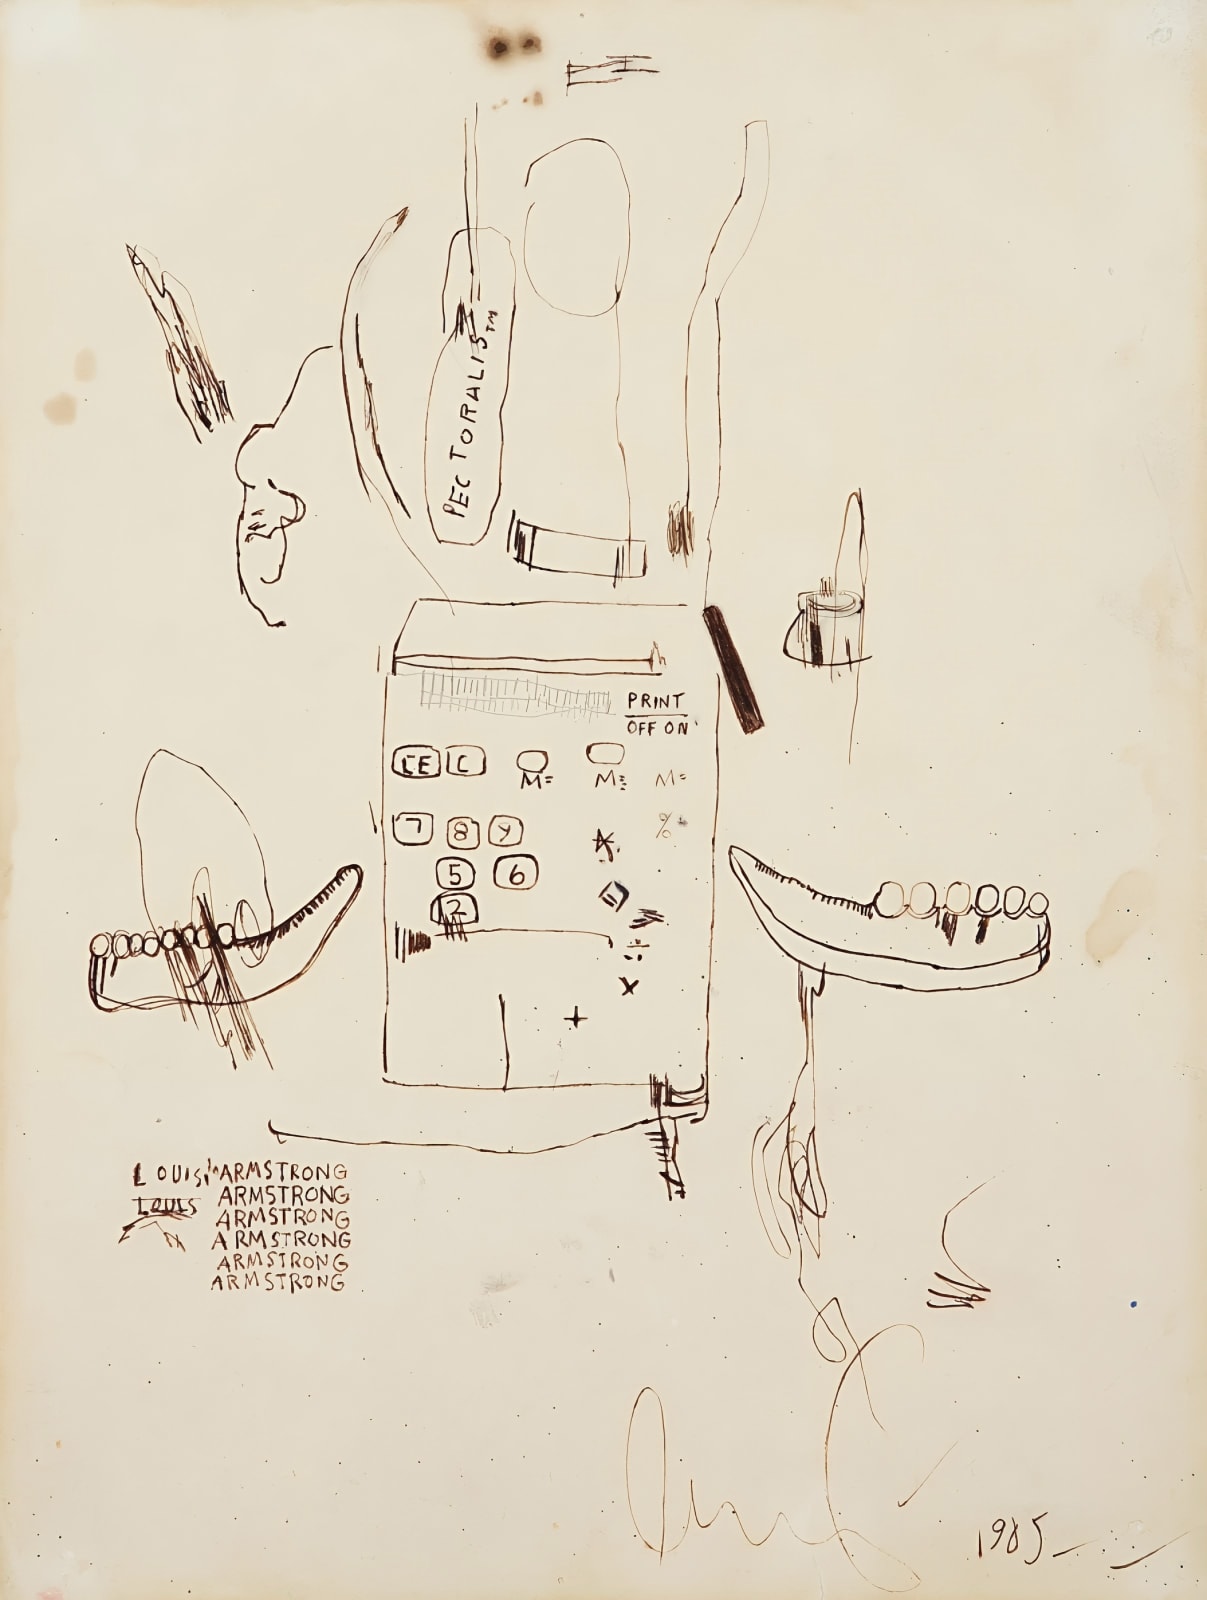 PECTORALIS™
PRINT
OFF ON
CE C M= M= M=
7 8 9 %
5 6
2
÷
×
+
LOUIS ARMSTRONG
LOUIS ARMSTRONG
ARMSTRONG
ARMSTRONG
ARMSTRONG
ARMSTRONG
1985